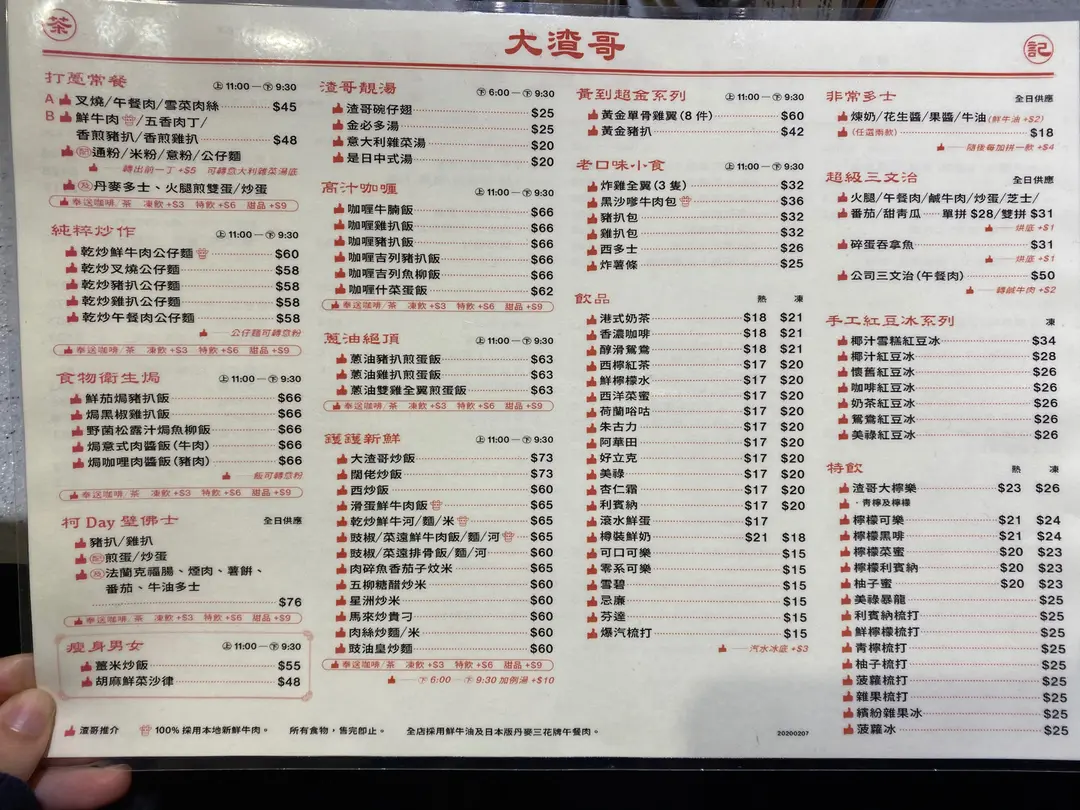 茶
大渣哥
記
打蔥常餐 上 11:00 — 下 9:30
A 叉燒/午餐肉/雪菜肉絲 $45
B 鮮牛肉/五香肉丁/
香煎豬扒/香煎雞扒 $48
配 通粉/米粉/意粉/公仔麵
轉出前一丁 +$5 可轉意大利雜菜湯底
及 丹麥多士、火腿煎雙蛋/炒蛋
奉送咖啡/茶 凍飲 +$3 特飲 +$6 甜品 +$9
純粹炒作 上 11:00 — 下 9:30
乾炒鮮牛肉公仔麵 $60
乾炒叉燒公仔麵 $58
乾炒豬扒公仔麵 $58
乾炒雞扒公仔麵 $58
乾炒午餐肉公仔麵 $58
公仔麵可轉意粉
奉送咖啡/茶 凍飲 +$3 特飲 +$6 甜品 +$9
食物衛生焗 上 11:00 — 下 9:30
鮮茄焗豬扒飯 $66
焗黑椒雞扒飯 $66
野菌松露汁焗魚柳飯 $66
焗意式肉醬飯(牛肉) $66
焗咖喱肉醬飯(豬肉) $66
飯可轉意粉
奉送咖啡/茶 凍飲 +$3 特飲 +$6 甜品 +$9
柯 Day 壁佛士 全日供應
豬扒/雞扒
配 煎蛋/炒蛋
及 法蘭克福腸、煙肉、薯餅、
番茄、牛油多士
$76
奉送咖啡/茶 凍飲 +$3 特飲 +$6 甜品 +$9
瘦身男女 上 11:00 — 下 9:30
薑米炒飯 $55
胡麻鮮菜沙律 $48
渣哥靚湯 下 6:00 — 下 9:30
渣哥碗仔翅 $25
金必多湯 $25
意大利雜菜湯 $20
是日中式湯 $20
高汁咖喱 上 11:00 — 下 9:30
咖喱牛腩飯 $66
咖喱雞扒飯 $66
咖喱豬扒飯 $66
咖喱吉列豬扒飯 $66
咖喱吉列魚柳飯 $66
咖喱什菜蛋飯 $62
奉送咖啡/茶 凍飲 +$3 特飲 +$6 甜品 +$9
蔥油絕頂 上 11:00 — 下 9:30
蔥油豬扒煎蛋飯 $63
蔥油雞扒煎蛋飯 $63
蔥油雙雞全翼煎蛋飯 $63
奉送咖啡/茶 凍飲 +$3 特飲 +$6 甜品 +$9
鑊鑊新鮮 上 11:00 — 下 9:30
大渣哥炒飯 $73
闊佬炒飯 $73
西炒飯 $60
滑蛋鮮牛肉飯 $65
乾炒鮮牛河/麵/米 $65
豉椒/菜遠鮮牛肉飯/麵/河 $65
豉椒/菜遠排骨飯/麵/河 $60
肉碎魚香茄子炆米 $65
五柳糖醋炒米 $60
星洲炒米 $60
馬來炒貴刁 $60
肉絲炒麵/米 $60
豉油皇炒麵 $60
奉送咖啡/茶 凍飲 +$3 特飲 +$6 甜品 +$9
下 6:00 — 下 9:30 加例湯 +$10
黃到超金系列 上 11:00 — 下 9:30
黃金單骨雞翼(8 件) $60
黃金豬扒 $42
老口味小食 上 11:00 — 下 9:30
炸雞全翼(3 隻) $32
黑沙嗲牛肉包 $36
豬扒包 $32
雞扒包 $32
西多士 $26
炸薯條 $25
飲品 熱 凍
港式奶茶 $18 $21
香濃咖啡 $18 $21
醇滑鴛鴦 $18 $21
西檸紅茶 $17 $20
鮮檸檬水 $17 $20
西洋菜蜜 $17 $20
荷蘭哈咕 $17 $20
朱古力 $17 $20
阿華田 $17 $20
好立克 $17 $20
美祿 $17 $20
杏仁霜 $17 $20
利賓納 $17 $20
滾水鮮蛋 $17
樽裝鮮奶 $21 $18
可口可樂 $15
零系可樂 $15
雪碧 $15
忌廉 $15
芬達 $15
爆汽梳打 $15
汽水冰底 +$3
非常多士 全日供應
煉奶/花生醬/果醬/牛油(鮮牛油 +$2)
(任選兩款) $18
隨後每加拼一款 +$4
超級三文治 全日供應
火腿/午餐肉/鹹牛肉/炒蛋/芝士/
番茄/甜青瓜 單拼 $28/雙拼 $31
烘底 +$1
碎蛋吞拿魚 $31
烘底 +$1
公司三文治(午餐肉) $50
轉鹹牛肉 +$2
手工紅豆冰系列 凍
椰汁雪糕紅豆冰 $34
椰汁紅豆冰 $28
懷舊紅豆冰 $26
咖啡紅豆冰 $26
奶茶紅豆冰 $26
鴛鴦紅豆冰 $26
美祿紅豆冰 $26
特飲 熱 凍
渣哥大檸樂 $23 $26
·青檸及檸檬
檸檬可樂 $21 $24
檸檬黑啡 $21 $24
檸檬菜蜜 $20 $23
檸檬利賓納 $20 $23
柚子蜜 $20 $23
美祿暴龍 $25
利賓納梳打 $25
鮮檸檬梳打 $25
青檸梳打 $25
柚子梳打 $25
菠蘿梳打 $25
雜果梳打 $25
繽紛雜果冰 $25
菠蘿冰 $25
渣哥推介 100% 採用本地新鮮牛肉。 所有食物,售完即止。 全店採用鮮牛油及日本版丹麥三花牌午餐肉。
20200207